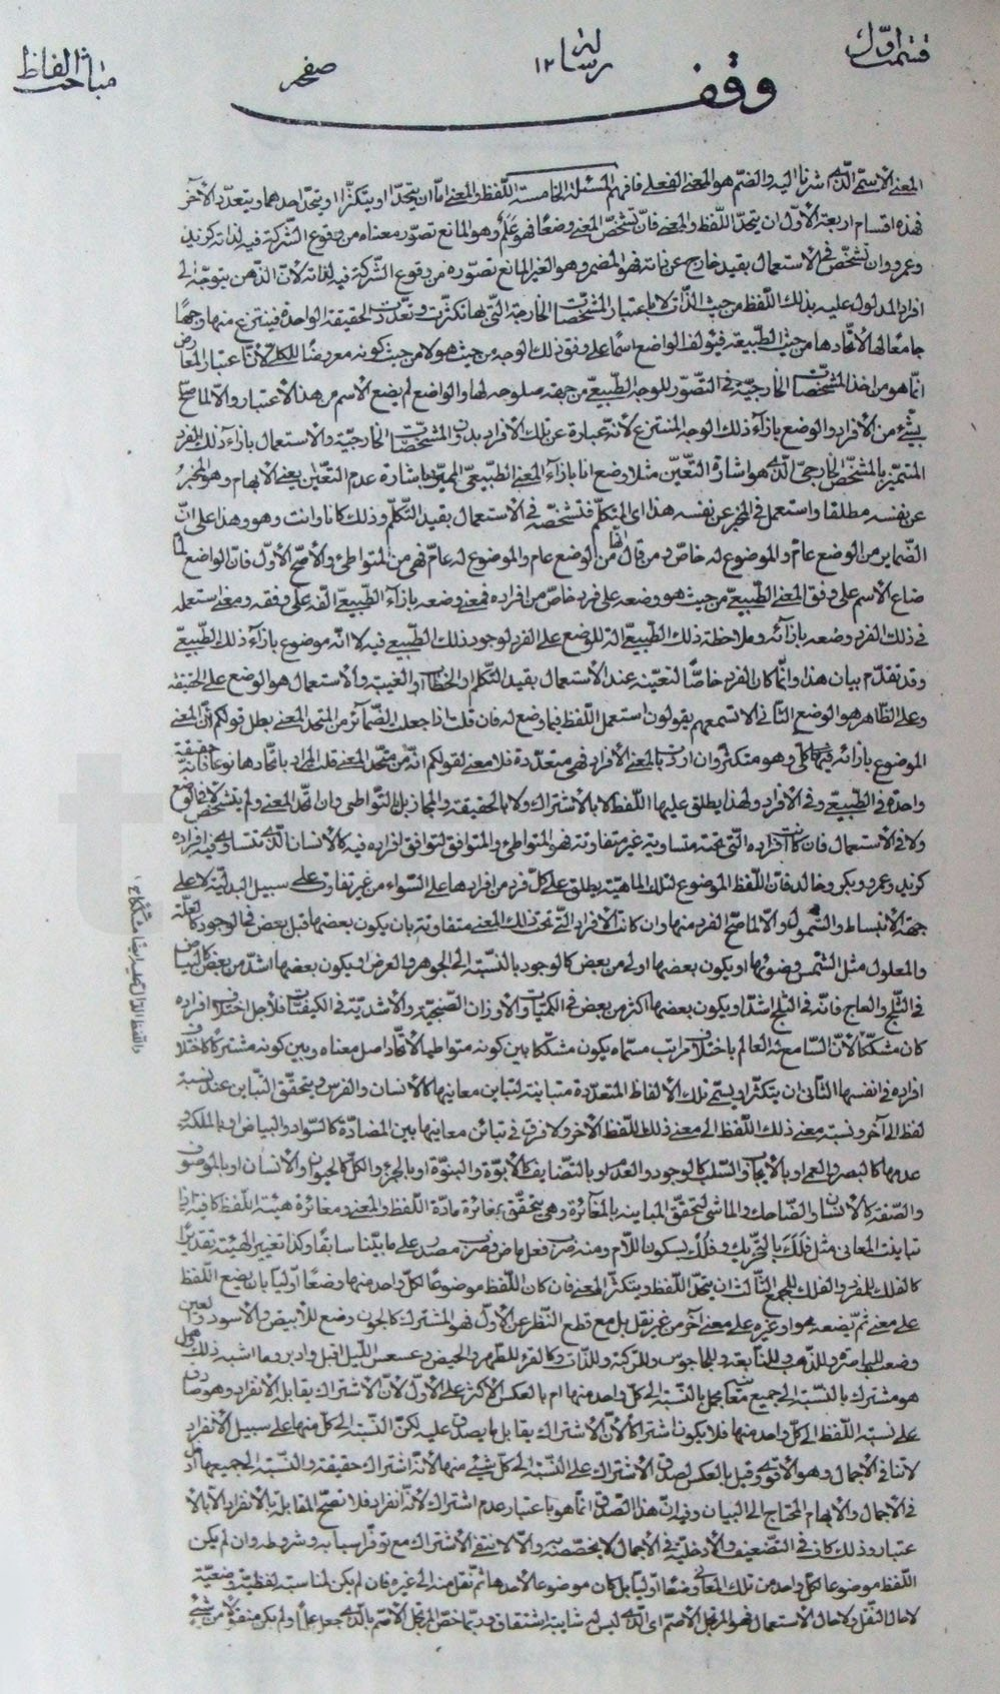 قسمت اول
رساله ۱۲
صفحه
مباحث الفاظ
وقف
المعنى الاسمى الذى اشرنا اليه والضم هو المعنى الفعلى فافهم المسئلة الخامسة اللفظ والمعنى اما ان يتحدا او يتكثرا او يتحد احدهما ويتعدد الآخر
فهذه اقسام اربعة الاول ان يتحد اللفظ والمعنى فان تشخص المعنى وضعا فهو علم وهو المانع تصور معناه من وقوع الشركة فيه لذاته كزيد
وعمرو وان تشخص فى الاستعمال بقيد خارج عن ذاته فهو المضمر وهو الغير المانع تصوره من وقوع الشركة فيه لذاته لان الذهن يتوجه الى
افراد المدلول عليه بذلك اللفظ من حيث الذات لا باعتبار المشخصات الخارجية التى بها تكثرت وتعددت الحقيقة الواحدة فينتزع منها وجها
جامعا لها لاتحادها من حيث الطبيعة فيؤلف الواضع اسما على وفق ذلك الوجه من حيث هو لا من حيث كونه معروضا للكلى لان اعتبار العارض
انما هو من اخذ المشخصات الخارجية فى التصور للوجه الطبيعى من جهة صلوحه لها والواضع لم يضع الاسم من هذا الاعتبار والا لما صح
بشئ من الافراد والوضع بازآء ذلك الوجه المنتزع لانه عبارة عن تلك الافراد بدون المشخصات الخارجية والاستعمال بازآء ذلك الفرد
المتميز بالمشخص الخارجى الذى هو اشارة التعين مثلا وضع انا بازآء المعنى الطبيعى المميز باشارة عدم التعين يعنى الابهام وهو المخبر
عن نفسه مطلقا واستعمل فى المخبر عن نفسه هذا اى المتكلم فتشخصه فى الاستعمال بقيد التكلم وذلك كانا وانت وهو وهذا على ان
الضماير من الوضع عام والموضوع له خاص ومن قال انها من الوضع عام والموضوع له عام فهى من المتواطئ والاصح الاول فان الواضع لما
ضاع الاسم على وفق المعنى الطبيعى من حيث هو وضعه على فرد خاص من افراده فمعنى وضعه بازآء الطبيعى الفه على وفقه ومعنى استعمله
فى ذلك الفرد وضعه بازآئه وملاحظة ذلك الطبيعى الة للوضع على الفرد لوجود ذلك الطبيعى فيه لا انه موضوع بازآء ذلك الطبيعى
وقد تقدم بيان هذا وانما كان الفرد خاصا لتعينه عند الاستعمال بقيد التكلم او الخطاب او الغيبة والاستعمال هو الوضع على الحقيقة
وعلى الظاهر هو الوضع الثانى الا تسمعهم يقولون استعمل اللفظ فيما وضع له فان قلت اذا جعلت الضمآئر من المتحد المعنى بطل قولكم ان المعنى
الموضوع بازائه فيها كلى وهو متكثر وان اردت بالمعنى الافراد فهى متعددة فلا معنى لقولكم انه من متحد المعنى قلت المراد باتحادها نوعا فانه حقيقة
واحدة فى الطبيعى وفى الافراد ولهذا يطلق عليها اللفظ لا بالاشتراك ولا بالحقيقة والمجاز بل بالتواطى وان اتحد المعنى ولم يتشخص لا فى الوضع
ولا فى الاستعمال فان كانت افراده التى تحته متساوية غير متفاوتة فهو المتواطئ والمتوافق لتوافق افراده فيه كالانسان الذى تتساوى فيه افراده
كزيد وعمرو وبكر وخالد فان اللفظ الموضوع لتلك الماهية يطلق على كل فرد من افرادها على السواء من غير تفاوت على سبيل البدلية لا على
جهة الانبساط والشمول والا لما صح الفرد منها وان كانت الافراد التى تحت ذلك المعنى متفاوتة بان يكون بعضها قبل بعض فى الوجود كالعلة
والمعلول مثل الشمس وضوئها او يكون بعضها اولى من بعض كالوجود بالنسبة الى الجوهر والعرض او يكون بعضها اشد من بعض كالبياض
فى الثلج والعاج فانه فى الثلج اشد او يكون بعضها اكثر من بعض فى الكميات والاوزان الصنجية والاشدية فى الكيفيات فلاجل اختلاف افراده
كان مشككا لان السامع له العالم باختلاف مراتب مسماه يكون مشككا بين كونه متواطيا لاتحاد اصل معناه وبين كونه مشتركا لاختلاف
افراده فى انفسها الثانى ان يتكثرا ويسمى تلك الالفاظ المتعددة متباينة لتباين معانيها كالانسان والفرس ويتحقق التباين عند نسبة
لفظ الى آخر ونسبة معنى ذلك اللفظ الى معنى ذلك اللفظ الآخر ولا فرق فى تبائن معانيها بين المضادة كالسواد والبياض او بالملكة و
عدمها كالبصر والعمى او بالايجاب والسلب كالوجود والعدم او بالتضايف كالابوة والبنوة او بالجزء والكل كالحيوان والانسان او بالموصوف
والصفة كالانسان والضاحك والماشى لتحقق المباينة بالمغآئرة وهى يتحقق بمغائرة مادة اللفظ والمعنى ومغائرة هيئة اللفظ كافية اذا
تباينت المعانى مثل فلك بالتحريك وفلك بسكون اللام ومنه ضرب فعل ماض وضرب مصدر على ما بينا سابقا وكذا تغيير الهيئة تقديرا
كالفلك للمفرد والفلك للجمع الثالث ان يتحد اللفظ ويتكثر المعنى فان كان اللفظ موضوعا لكل واحد منها وضعا اوليا بان يضع اللفظ
على معنى ثم يضعه هو او غيره على معنى آخر من غير نقل بل مع قطع النظر عن الاول فهو المشترك كالجون وضع للابيض والاسود والعين
وضعت للباصرة وللذهب وللنابعة وللجاسوس وللركبة وللذات وكالقرء للطهر والحيض وعسعس الليل اقبل وادبر وما اشبه ذلك وهل
هو مشترك بالنسبة الى الجميع معا مجمل بالنسبة الى كل واحد منها ام بالعكس الاكثر على الاول لان الاشتراك يقابل الانفراد وهو صادق
على نسبة اللفظ الى كل واحد منها فلا يكون اشتراكا لان الاشتراك يقابل ما يصدق عليه لكن النسبة الى كل منها على سبيل الانفراد
لا تنافى الاجمال وهو الاقوى وقيل بالعكس لصدق الاشتراك على النسبة الى كل شئ منها لانه اشتراك حقيقة والنسبة الى جميعها ادخل
فى الاجمال والابهام المحتاج الى البيان وفيه ان هذا الصدق انما هو باعتبار عدم اشتراك لانه انفراد فلا تصح المقابلة بالانفراد الا بالا
عتبار وذلك كاف فى التضعيف والادخلية فى الاجمال لا يخصصه والا لانتفى الاشتراك مع توفر اسبابه وشروطه وان لم يكن
اللفظ موضوعا لكل واحد من تلك المعانى وضعا اوليا بل كان موضوعا لاحدها ثم نقل منه الى غيره فان لم يكن لمناسبة لفظية وضعية
لا حال النقل ولا حال الاستعمال فهو المرتجل الاصم اى الذى ليس له شايبة اشتقاق وربما خص المرتجل الاصم بالذى جعل علما ولم يكن منقولا من شئ